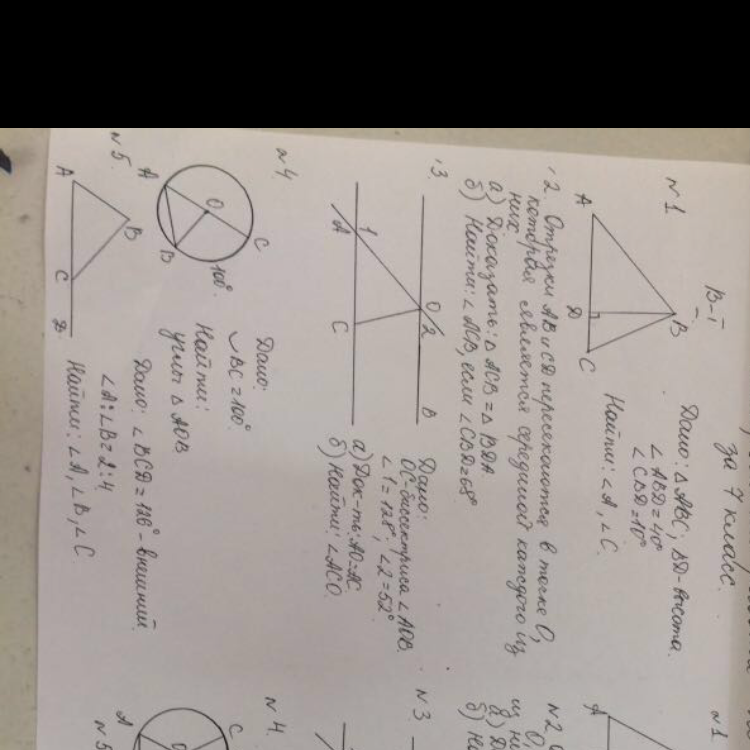 за 7 класс.
В-I
№1
B
A
D
C
Дано: △ABC; BD-высота.
∠ABD=40°
∠CBD=10°
Найти: ∠A, ∠C
2. Отрезки AB и CD пересекаются в точке O,
которая является серединой каждого из
них
а) Доказать: △ACB = △BDA.
б) Найти: ∠ACB, если ∠CBD=68°
3.
O
2
B
1
A
C
Дано:
OC-биссектриса ∠AOB.
∠1=128°; ∠2=52°
а) Док-ть: AO=AC
б) Найти: ∠ACO.
№4.
C
O
A
B
100°.
Дано:
◡BC=100°
Найти:
углы △AOB
№5.
B
A
C
D
Дано: ∠BCD=126°-внешний
∠A:∠B=2:4
Найти: ∠A, ∠B, ∠C
№1
A
№2
№3
№4.
C
O
A
№5